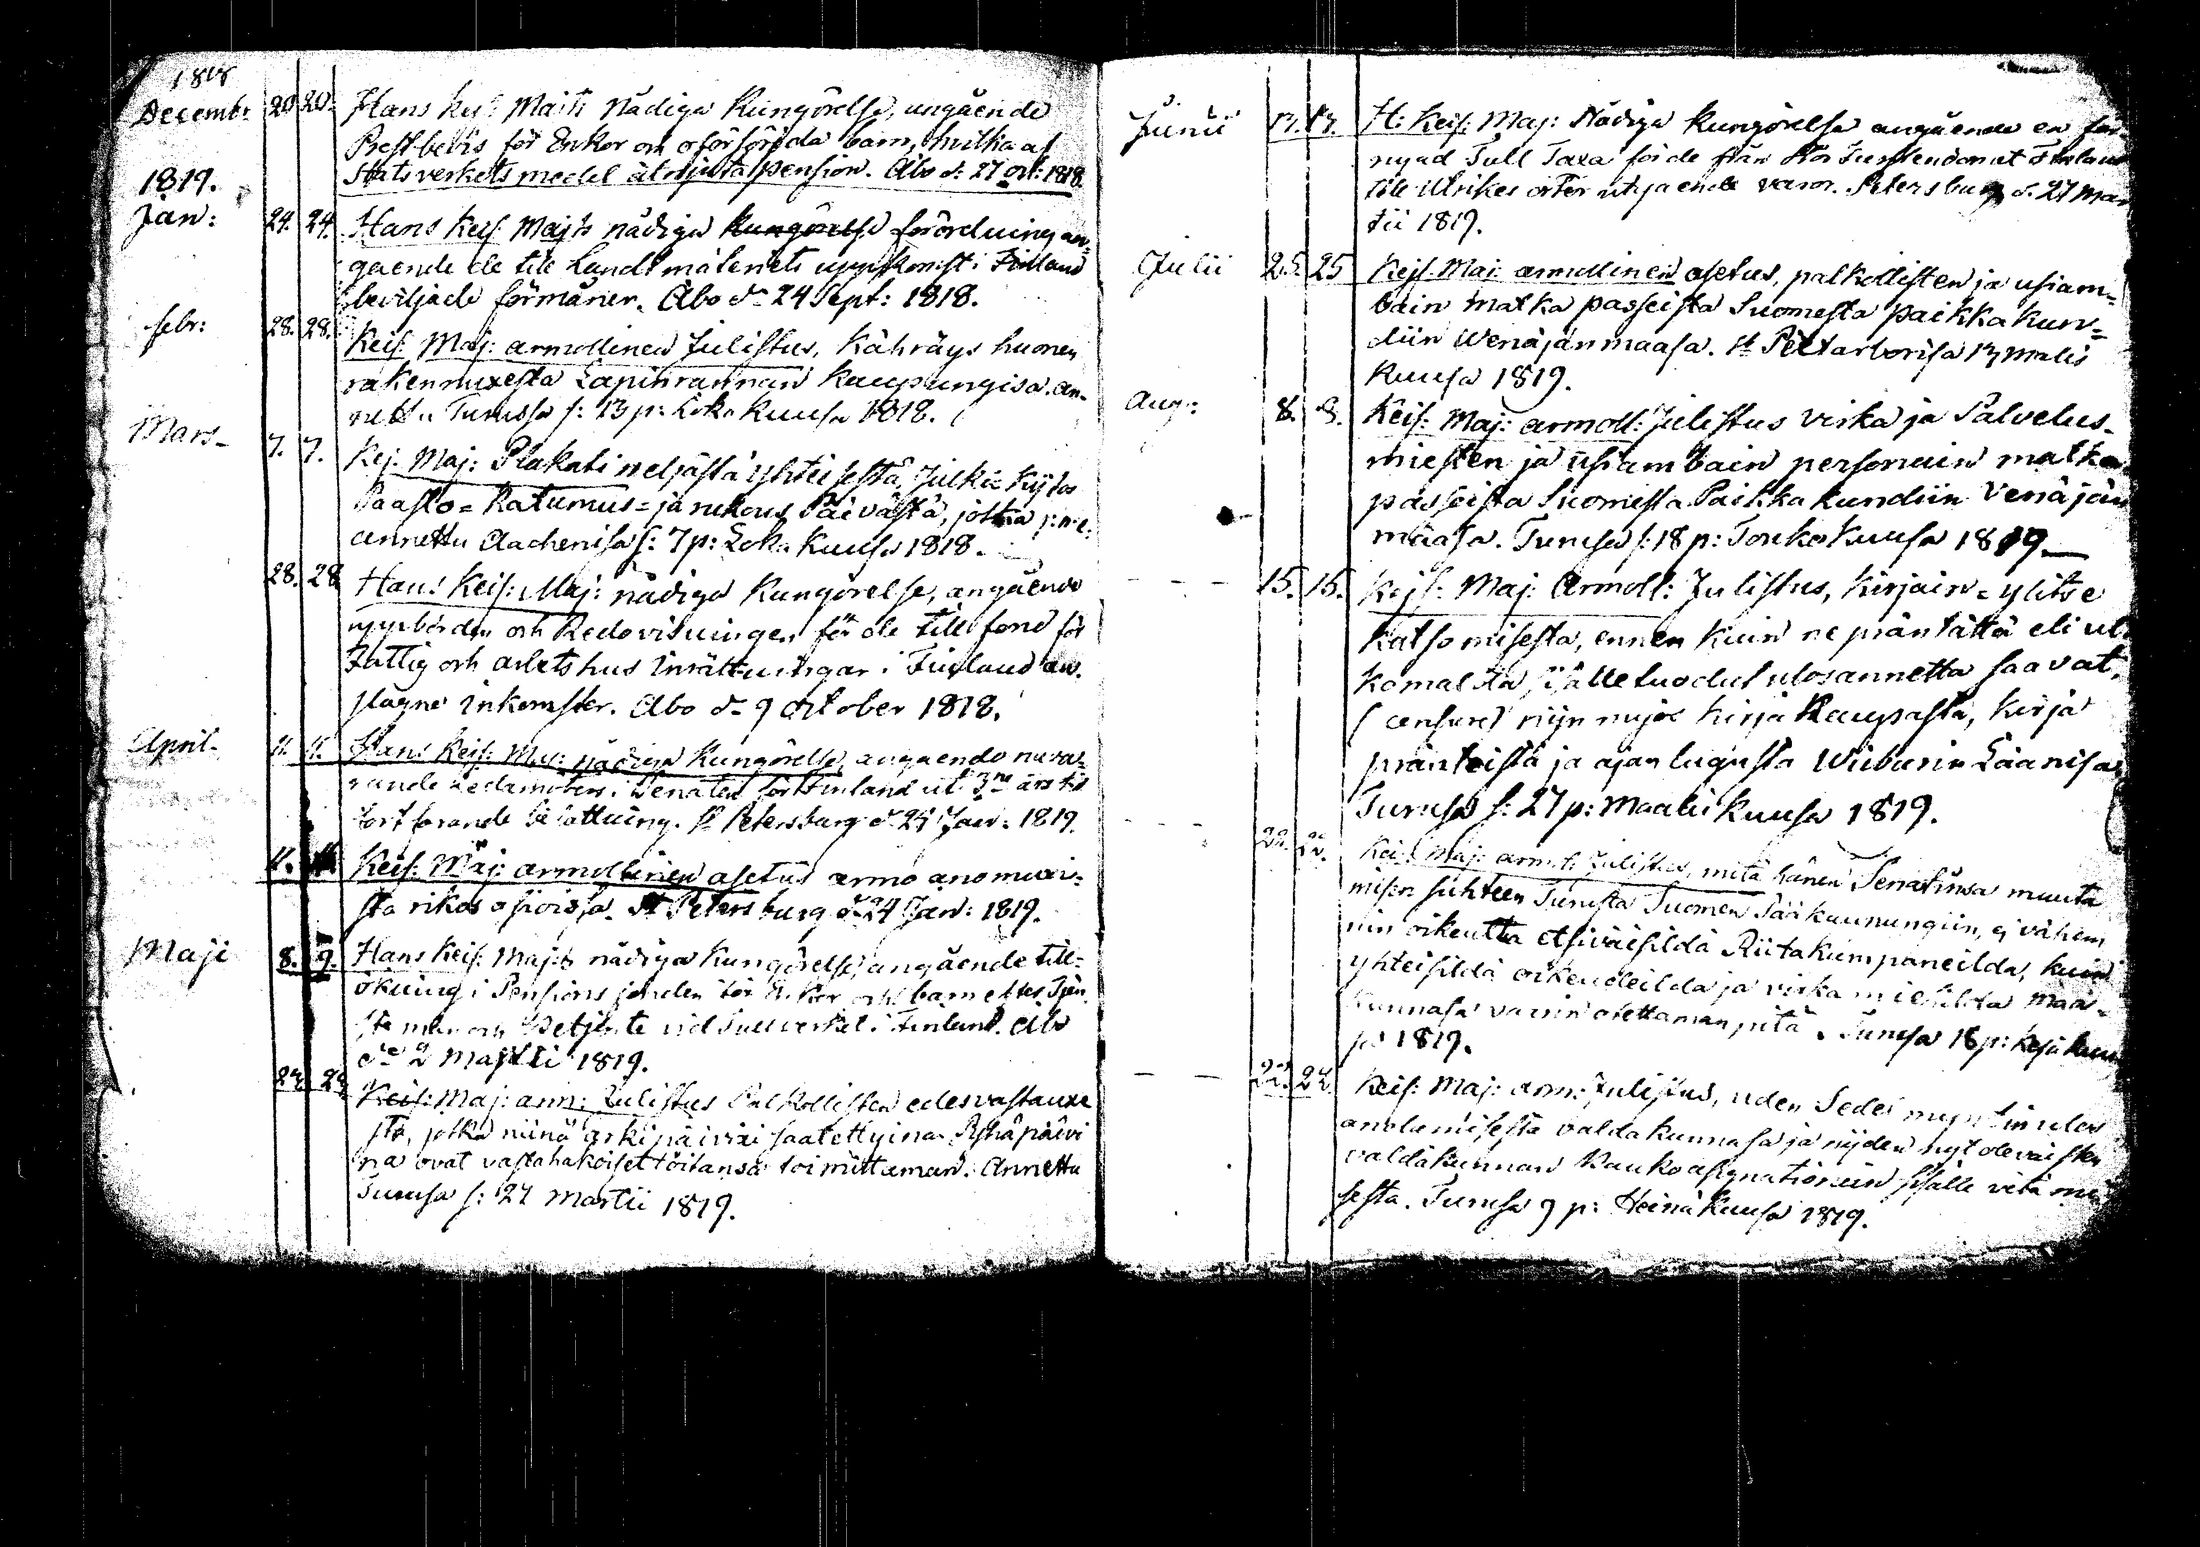 1818
Decembr 20 20. Hans Kejs: Maj:ts Nådiga Kungörelse, angående
Prest-bevis för Enkor och oförsörgda barn, hvilka af
Stats verkets medel åtnjuta pension. Åbo d: 27 oct: 1818
1819.
Jan: 24. 24. Hans Keis. Maj:ts nådiga Kungörelse förordning an-
gående de till Landtmäteriets uppkomst i Finland
beviljade förmåner. Åbo d. 24 Sept: 1818.
febr: 28. 28. Keis. Maj: armollinen Julistus, Kähräys huonen
rakennuxesta Lapinrannan Kaupungisa. an-
nettu Turussa s: 13 p: Loka Kuusa 1818.
Mars- 7. 7. Kej. Maj: Plakati neljästä yhteisestä, Julki- Kijtos
Paasto= Katumus= ja rukous Päivästä, jotka
annettu Aachenisa s: 7 p: Loka Kuusa 1818.
28. 28 Hans Keis: Maj: nådiga Kungörelse, angående
uppbörden och Redovisningen för de till fond för
Fattig och arbetshus Inrättningar i Finland an-
slagne Inkomster. Abo d. 9 October 1818.
April- 11. 11. Hans Keis: Maj: nådiga Kungörelse, angaende nuva-
rande Ledamöters i Senaten för Finland ut 3ne års tid
fortfarande befattning. St Petersburg d. 24 Jan: 1819.
11. 11. Keis. Maj: armollinen asetus armo anomuxi-
sta rikos asioissa. St Petersburg d. 24 Jan: 1819.
Maji 8. 9. Hans Keis. Maj:ts nådiga Kungörelse, angående till-
ökning i Pensions fonden för Enkor och barn efter Tjen-
ste män och Betjente vid Tullverket i Finland. Abo
d. 2 Martii 1819.
Keis: Maj: arm: Julistus Palkollisten edesvastauxe
sta, jotka niinä arkipäivixi saatettyinä Pyhäpäivi
nä ovat vastahakoiset töitänsä toimittaman. Annettu
Turusa s: 27 Martii 1819.
Junii 13. 13. H: Keis: Maj: Nådiga Kungörelse angående en för-
nyad Tull Taxa för de från Stor Furstendömet Finland
till Utrikes orter utgående varor. Petersburg d. 27 Mar
tii 1819.
Julii 25. 25 Keis. Maj: armollinen asetus, palkollisten ja usiam-
bain matka passeista Suomesta paikkakun-
diin Wenäjänmaasa. St Pettarborisa 13 Malis
Kuusa 1819.
Aug: 8. 8. Keis: Maj: armoll: Julistus virka ja Palvelus-
miesten ja usiambain personain matka
passeista Suomesta Paikka kundiin Venäjän
maasa. Turusa s: 18 p: Touko Kuusa 1819
- - - 15. 15. Kejs: Maj: Armoll: Julistus, Kirjain= ylitse
Katsomisesta, ennen kuin ne präntättä eli ul-
komaalta sisälletuodut ulosannetta saavat,
(censure) niin myös Kirja Kaupasta, Kirja
prantistä ja ajan lugusta Wiburin Läänisa
Turusa s: 27 p: Maalis Kuusa 1819.
- - - 22. 22. Keis: Maj: arm: Julistus, mitä hänen Senatinsa muuta
misen suhteen Turusta Suomen Pääkaupungiin, ej vähem
min oikeutta etsiväisildä Riitakumpaneilda, kuin
yhteisildä oikeudeilda ja virkamiehildä Maa-
kunnasa vaarin otettaman pitä. Turusa 18 p: Kesäkuu
sa 1819.
- - 22. 22 Keis: Maj: arm: Julistus, uden Sedel myntin ulos
andamisesta valdakunnasa ja nijden nyt olevaisten
valdakunnan Panko asignationein sisälle vetämi-
sesta. Turusa 9 p: Heinä Kuusa 1819.